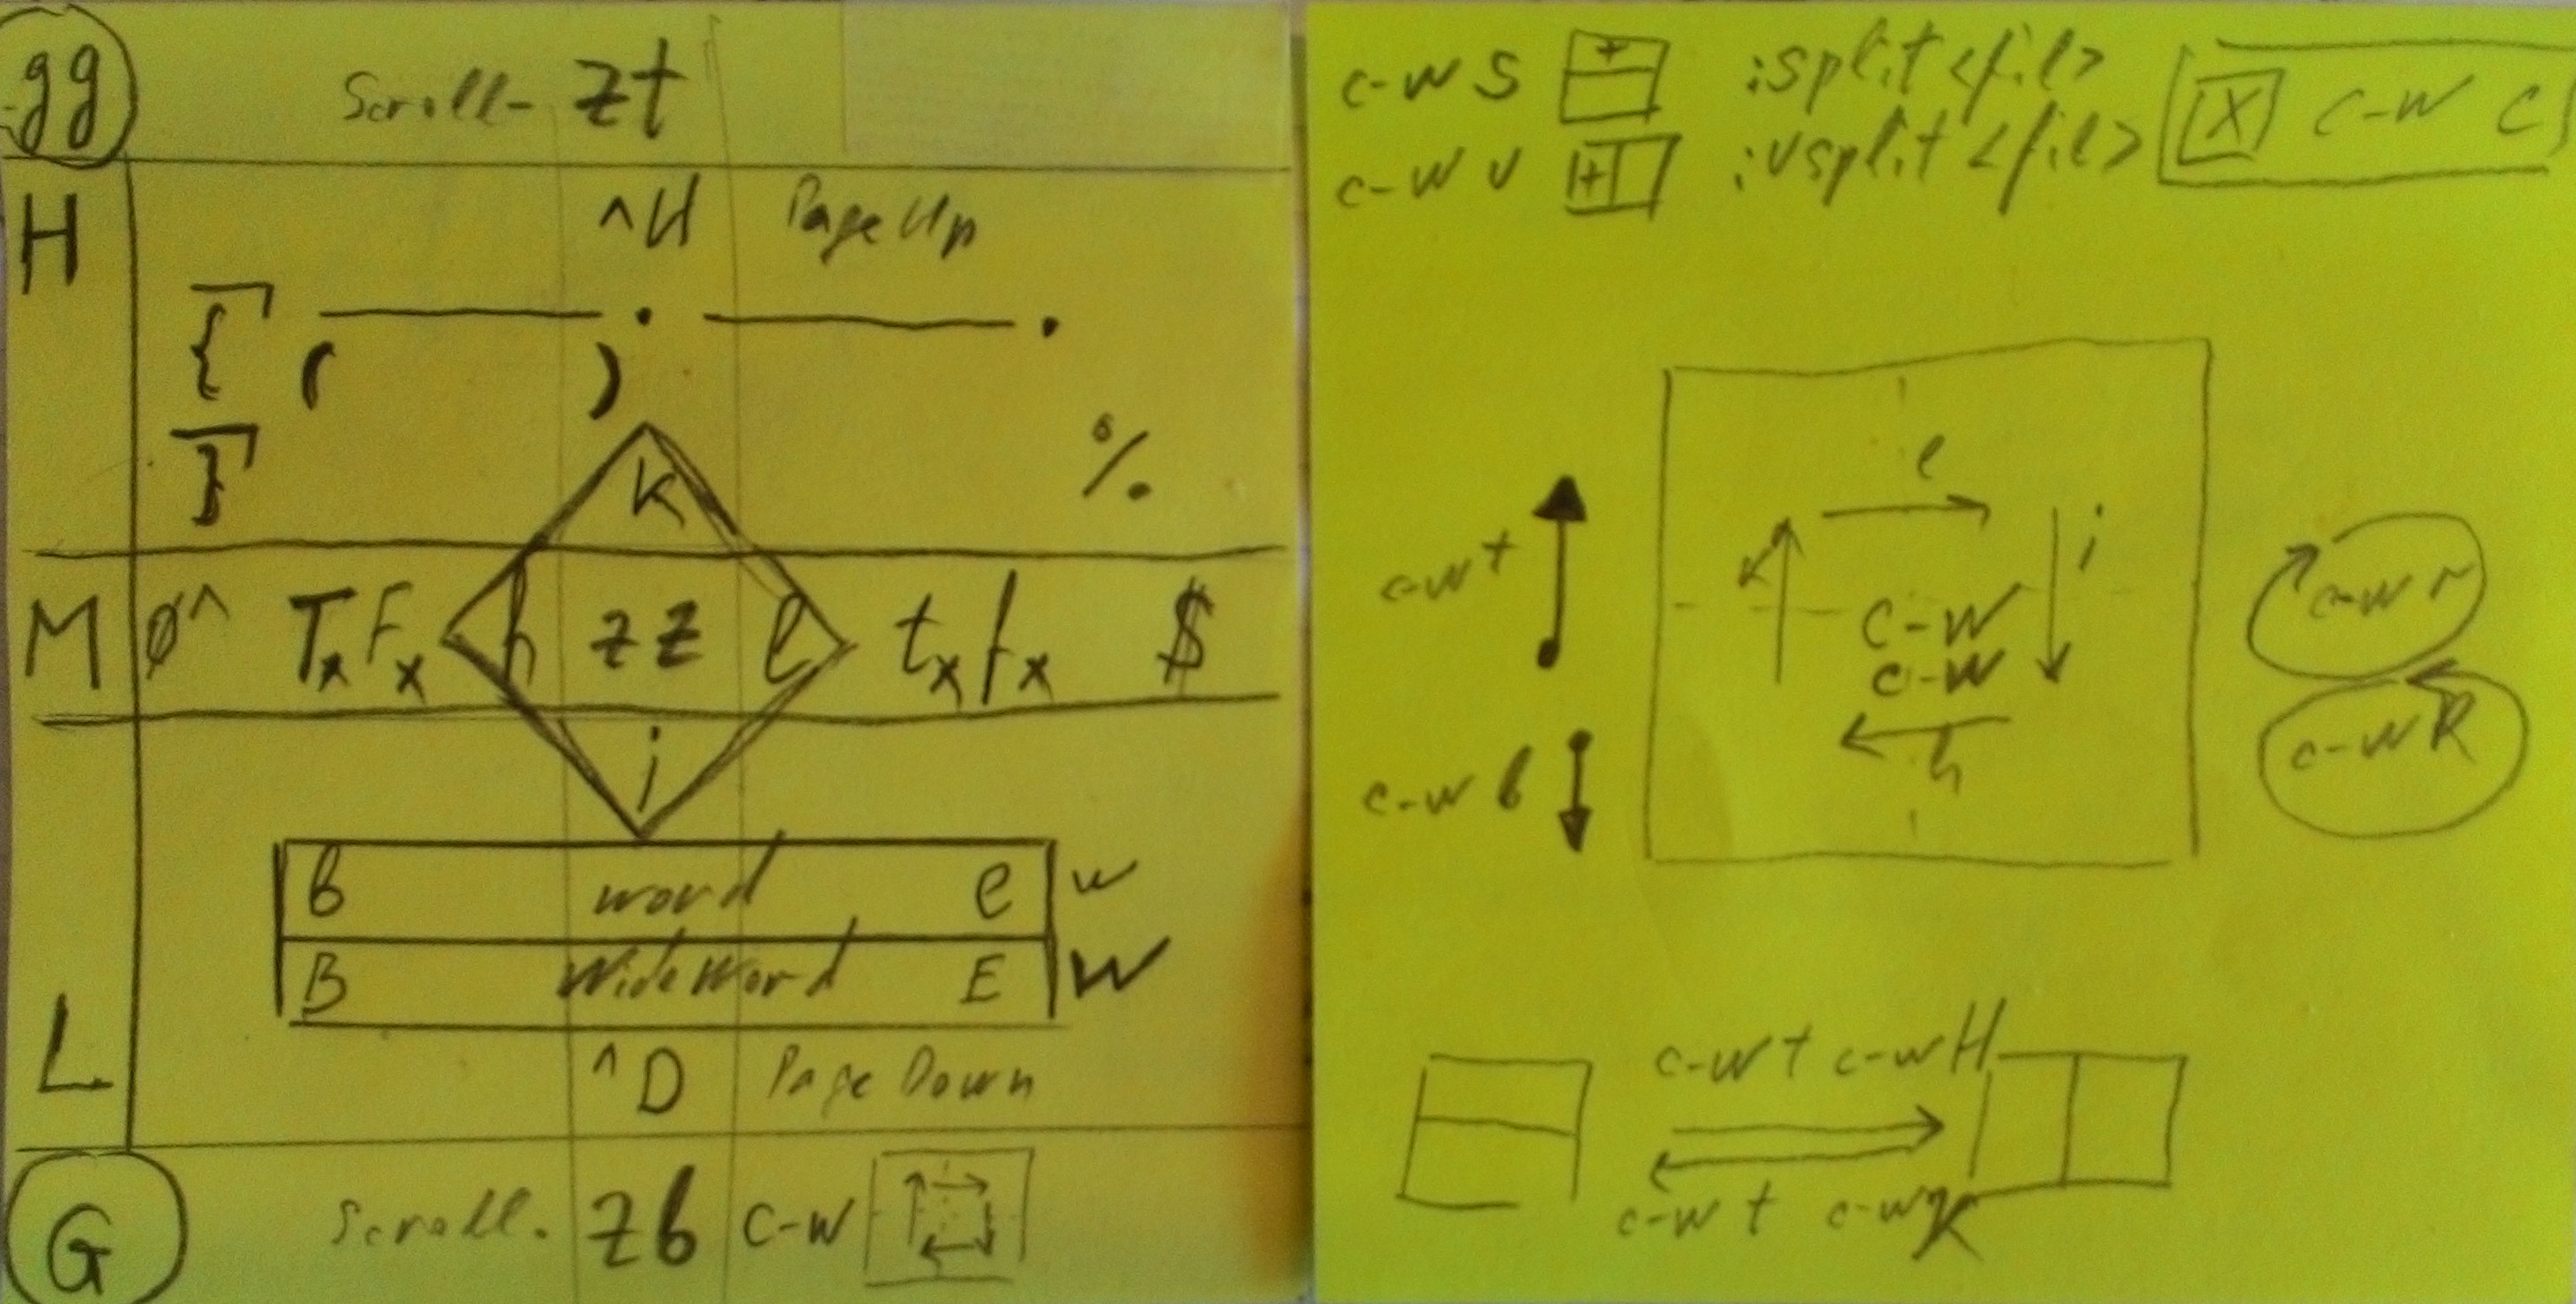 gg Scroll- zt
H ^U PageUp
{ ( ) .
} %
k
M 0^ Tx Fx h zz l tx fx $
j
b word e w
B WideWord E W
L ^D Page Down
G Scroll. zb c-w
c-w s + :split <fil>
c-w v + :vsplit <fil>
[X] c-w c
l
k j
c-w
c-w
h
c-w t
c-w b
c-w r
c-w R
c-w t c-w H
c-w t c-w K